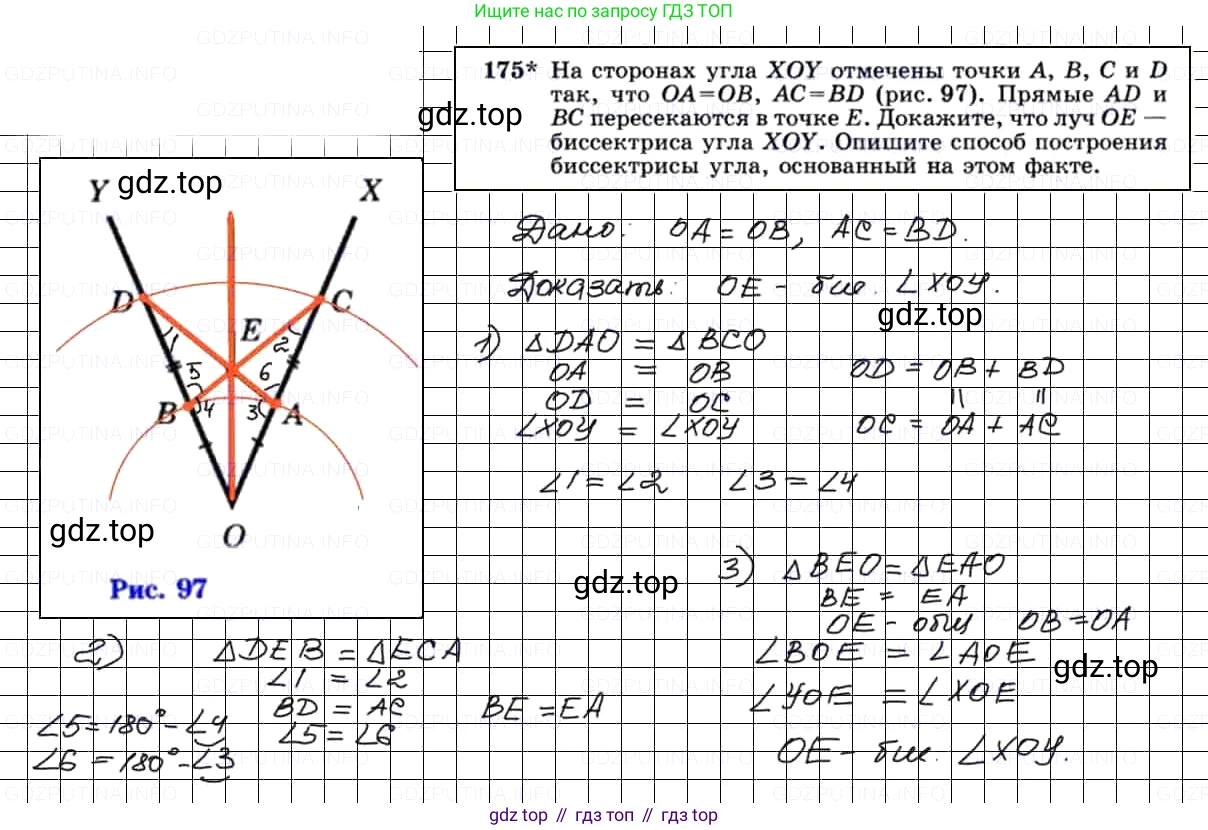 Ищите нас по запросу ГДЗ ТОП
175* На сторонах угла XOY отмечены точки A, B, C и D
так, что OA=OB, AC=BD (рис. 97). Прямые AD и
BC пересекаются в точке E. Докажите, что луч OE —
биссектриса угла XOY. Опишите способ построения
биссектрисы угла, основанный на этом факте.
gdz.top
gdz.top
Y
X
D
C
E
1
2
5
6
B
4
3
A
O
gdz.top
Рис. 97
Дано: OA = OB, AC = BD.
Доказать: OE бис. ∠XOY.
gdz.top
1) △DAO = △BCO
OA = OB
OD = OC
∠XOY = ∠XOY
OD = OB + BD
|| ||
OC = OA + AC
∠1 = ∠2 ∠3 = ∠4
gdz.top
2) △DEB = △ECA
∠1 = ∠2
BD = AC
∠5 = ∠6
∠5 = 180° - ∠4
∠6 = 180° - ∠3
BE = EA
3) △BEO = △EAO
BE = EA
OE - общ OB = OA
∠BOE = ∠AOE
gdz.top
∠YOE = ∠XOE
OE - бис. ∠XOY.
gdz.top // гдз топ // gdz top
GDZPUTINA.INFO